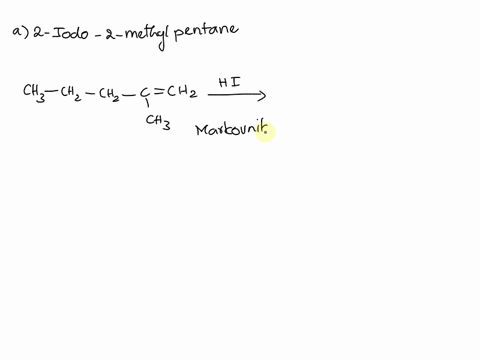 a) 2-Iodo-2-methyl pentane
CH3-CH2-CH2-C=CH2 HI
CH3
Markounit